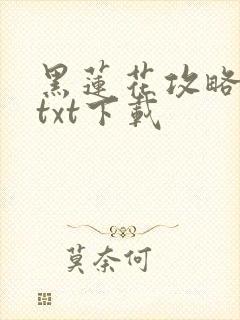 黑蓮花攻略
txt下載
莫奈何